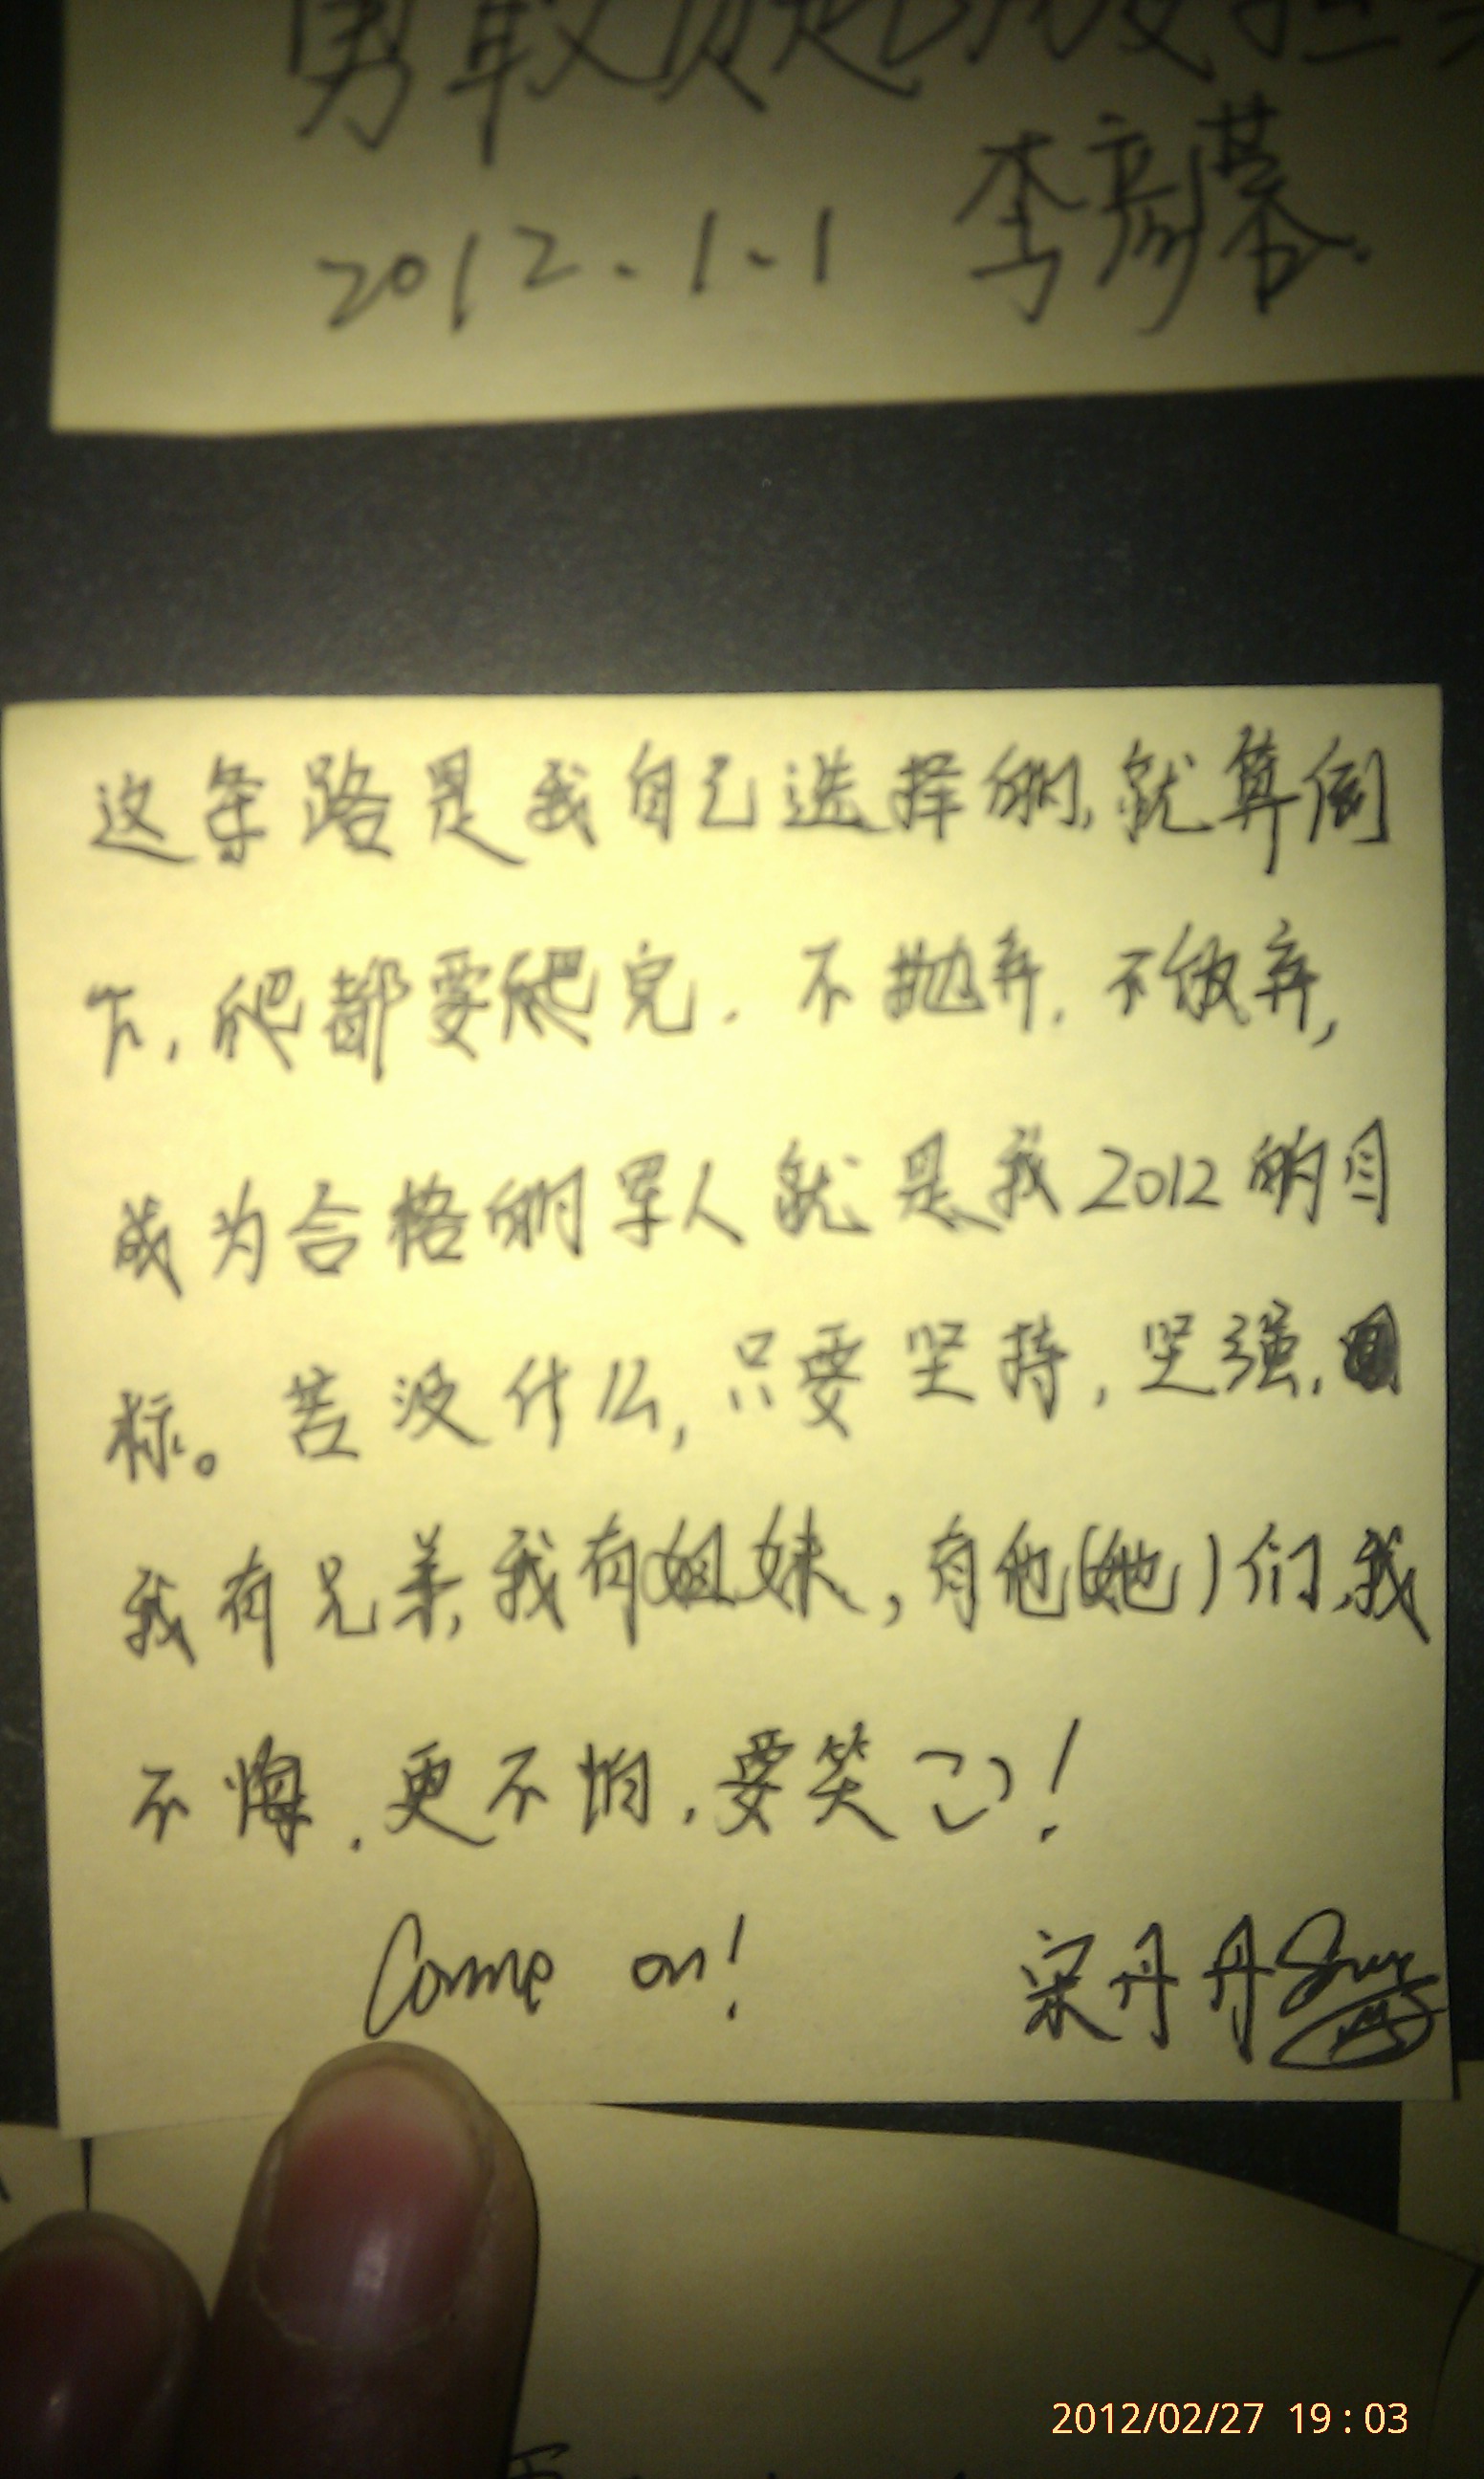 勇敢
2012.1.1 李彦慕.
这条路是我自己选择的,就算倒
下,爬都要爬完.不抛弃.不放弃,
成为合格的军人就是我2012的目
标。苦没什么,只要坚持,坚强,
我有兄弟,我有姐妹,有他(她)们,我
不悔.更不怕.要笑!
Come on! 宋丹丹
2012/02/27 19:03